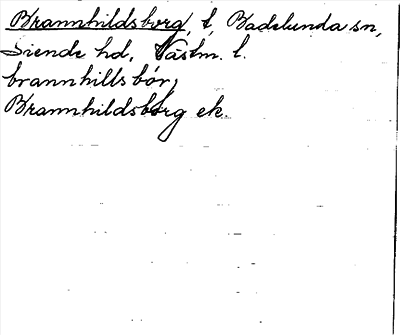 Brannhildsborg, t, Badelunda sn,
Siende hd, Västm. l.
brannhills bór,
Brannhildsborg ek.